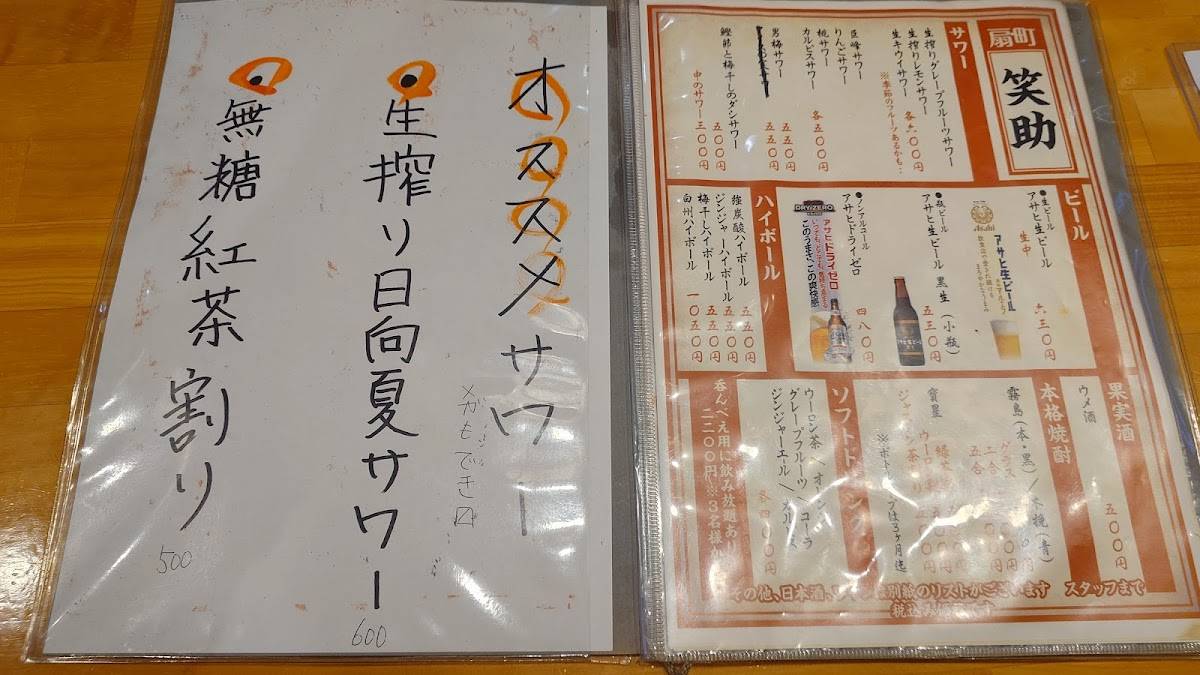 オススメサワー
メガもでき〼
生搾り日向夏サワー
600
無糖紅茶割り
500
扇町
笑助
サワー
生搾りグレープフルーツサワー
生搾りレモンサワー
生キウイサワー
各六〇〇円
※季節のフルーツあるかも…
巨峰サワー
りんごサワー
桃サワー
カルピスサワー
各五〇〇円
男梅サワー
五五〇円
五五〇円
鰹節と梅干しのダシサワー
五〇〇円
中のサワー
三〇〇円
ビール
●生ビール
アサヒ生ビール
生中
六三〇円
Asahi
アサヒ生ビール
●瓶ビール
アサヒ生ビール 黒生(小瓶)
五三〇円
●ノンアルコール
アサヒドライゼロ
四八〇円
DRY ZERO
アサヒドライゼロ
このうまさ、この爽快感
ハイボール
強炭酸ハイボール
五五〇円
ジンジャーハイボール
五五〇円
梅干しハイボール
五五〇円
白州ハイボール
一〇五〇円
果実酒
ウメ酒
五〇〇円
本格焼酎
霧島(本・黒)/木挽(青)
グラス
二合
五合
寳星
緑茶
ジャスミン茶
※ボトルキープは3ヶ月迄
ソフトドリンク
ウーロン茶
コーラ
グレープフルーツ
ジンジャーエール
各四〇〇円
呑んべえ用に飲み放題あり
二二〇〇円※3名様から
その他、日本酒、
別紙のリストがございます
スタッフまで